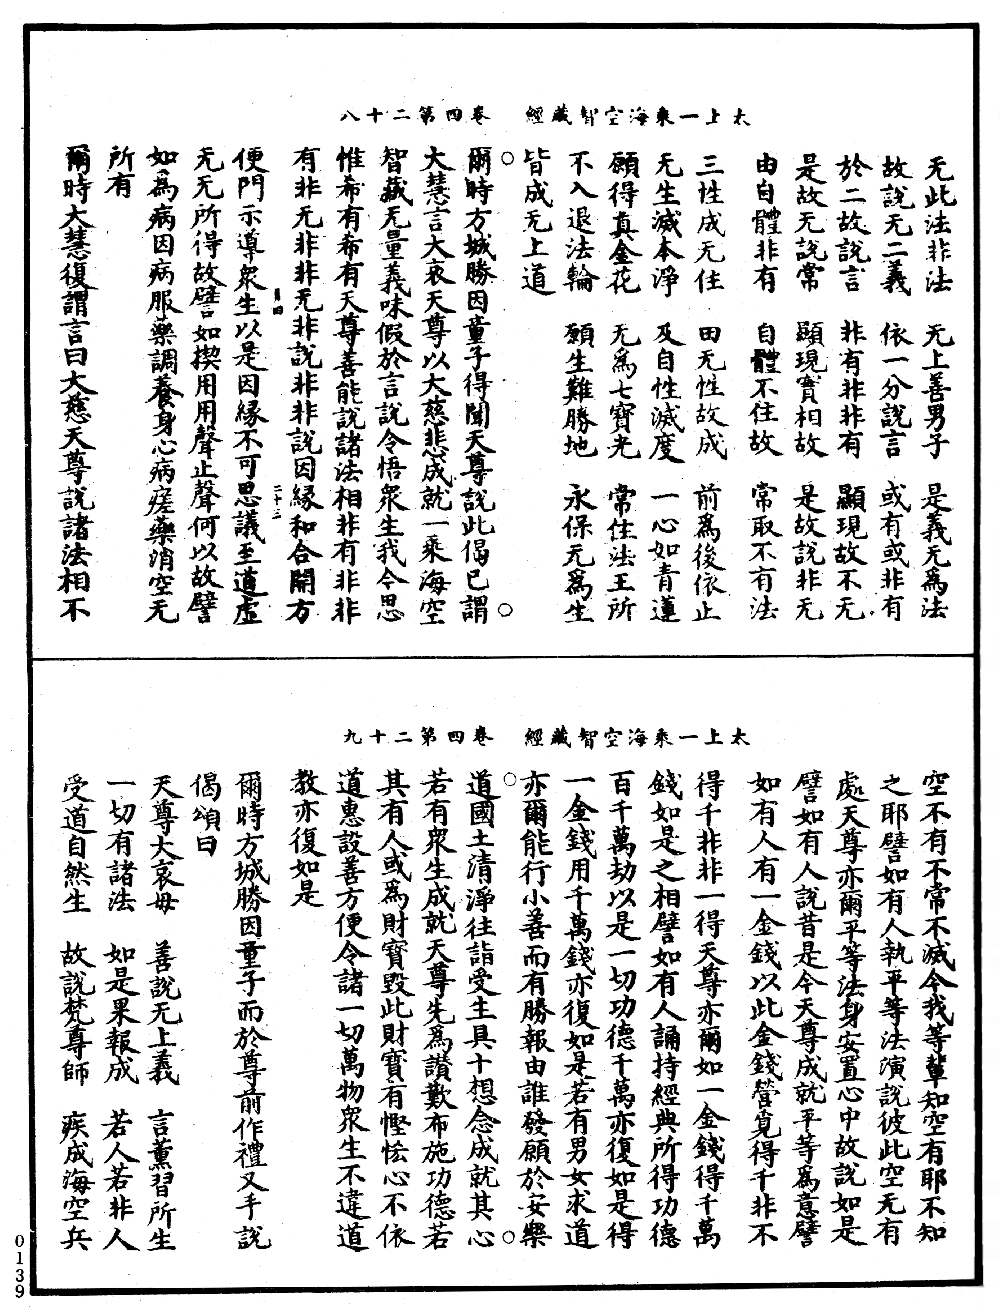 太上一乘海空智藏經　卷四第二十八
无此法非法　无上善男子　是義无為法
故說无二義　依一分說言　或有或非有
於二故說言　非有非非有　顯現故不无
是故无說常　顯現實相故　是故說非无
由自體非有　自體不住故　常取不有法
三性成无住　田无性故成　前為後依止
无生滅本淨　及自性滅度　一心如青蓮
願得真金花　无為七寶光　常住法王所
不入退法輪　願生難勝地　永保无為生
皆成无上道
爾時方城勝因童子得聞天尊說此偈已謂
大慧言大哀天尊以大慈悲成就一乘海空
智藏无量義味假於言說令悟眾生我今思
惟希有希有天尊善能說諸法相非有非非
有非无非非无非說非非說因緣和合開方
便門示導眾生以是因緣不可思議至道虛
无无所得故譬如揳用用聲止聲何以故譬
如為病因病服藥調養身心病瘥藥消空无
所有
爾時大慧復謂言曰大慈天尊說諸法相不
二十三
太上一乘海空智藏經　卷四第二十九
空不有不常不滅令我等輩知空有耶不知
之耶譬如有人執平等法演說彼此空无有
處天尊亦爾平等法身安置心中故說如是
譬如有人說昔是今天尊成就平等為意譬
如有人有一金錢以此金錢營覓得千非不
得千非非一得天尊亦爾如一金錢得千萬
錢如是之相譬如有人誦持經典所得功德
百千萬劫以是一切功德千萬亦復如是得
一金錢用千萬錢亦復如是若有男女求道
亦爾能行小善而有勝報由誰發願於安樂
道國土清淨往詣受生具十想念成就其心
若有眾生成就天尊先為讚歎布施功德若
其有人或為財寶毀此財寶有慳悋心不依
道惠設善方便令諸一切萬物眾生不違道
教亦復如是
爾時方城勝因童子而於尊前作禮叉手說
偈頌曰
天尊大哀母　善說无上義　言薰習所生
一切有諸法　如是果報成　若人若非人
受道自然生　故說梵尊師　疾成海空兵
0139